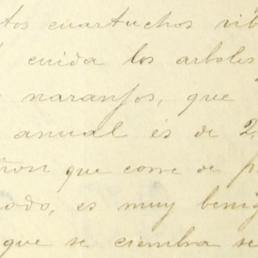 tos cuartuchos
cuida los arboles
naranjos, que
anual és de 2
que corre de p
odo, es muy benig
que se ciembra se